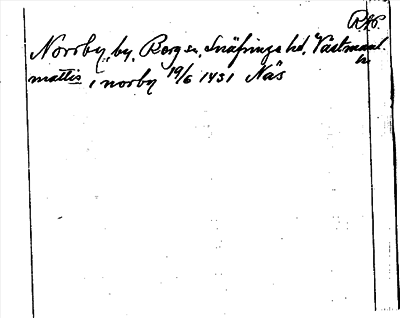 RAP.
Norrby, by, Bergs sn, Snäfringe hd, Västmanl.
mattis i norby 19/6 1431 Näs